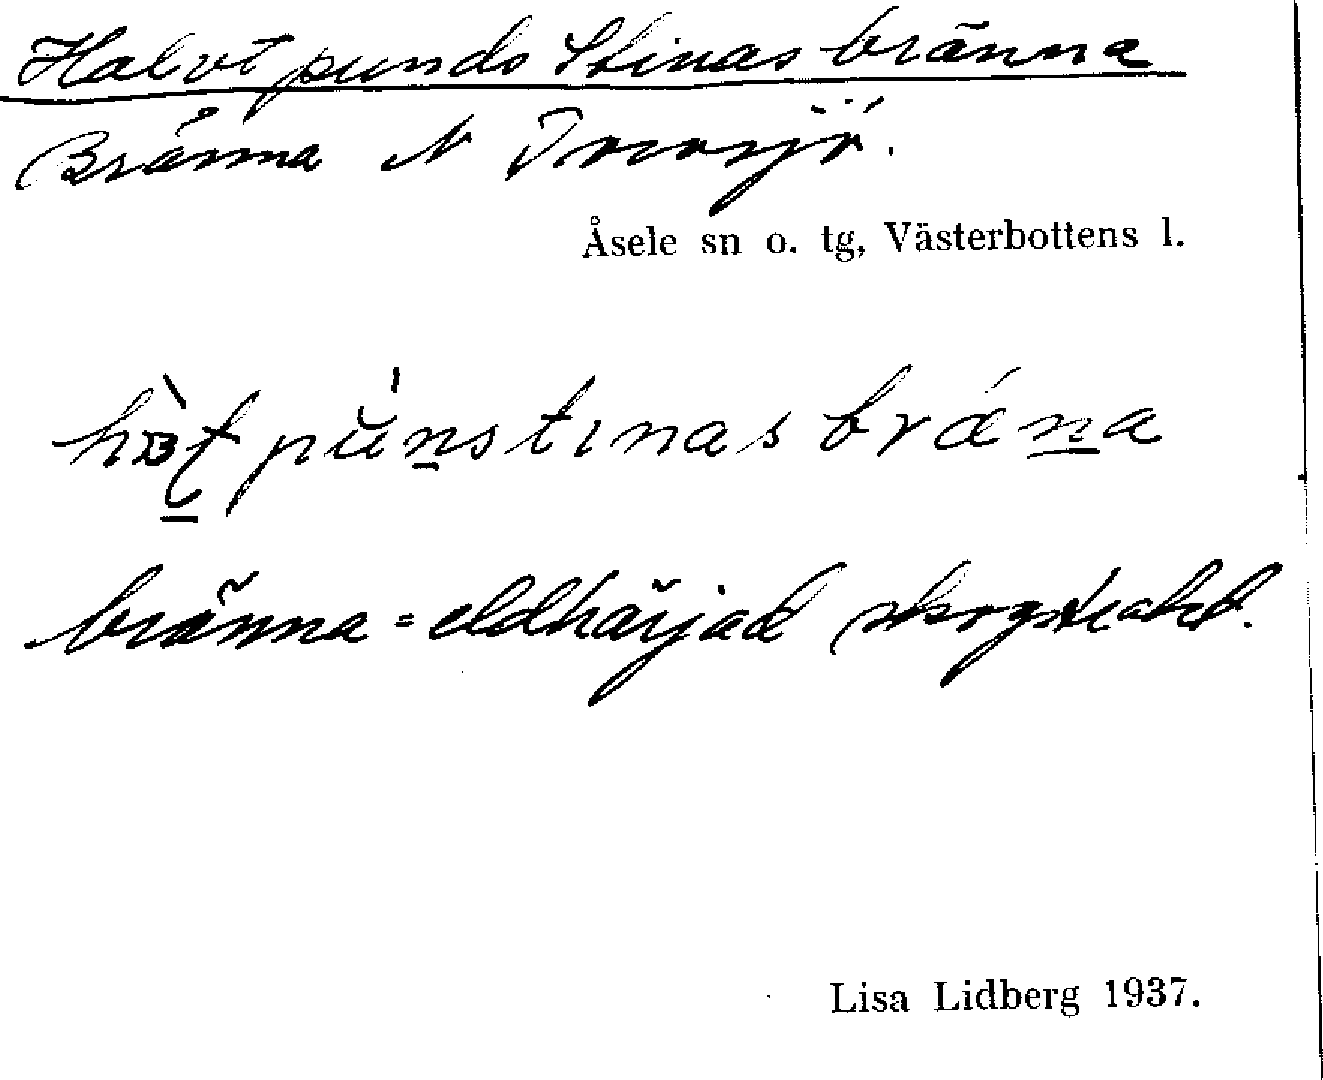 Halvt punds Stinas bränna
Bränna N Torvsjö.
Åsele sn o. tg, Västerbottens l.
bränna = eldhärjad skogstrakt.
Lisa Lidberg 1937.